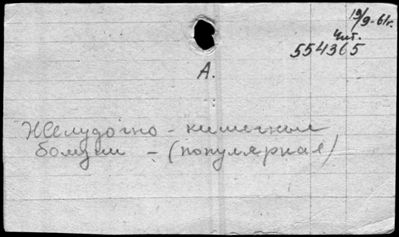 19/9-61г.
Чит.
554365
А.
Желудочно-кишечные
болезни - (популярная)